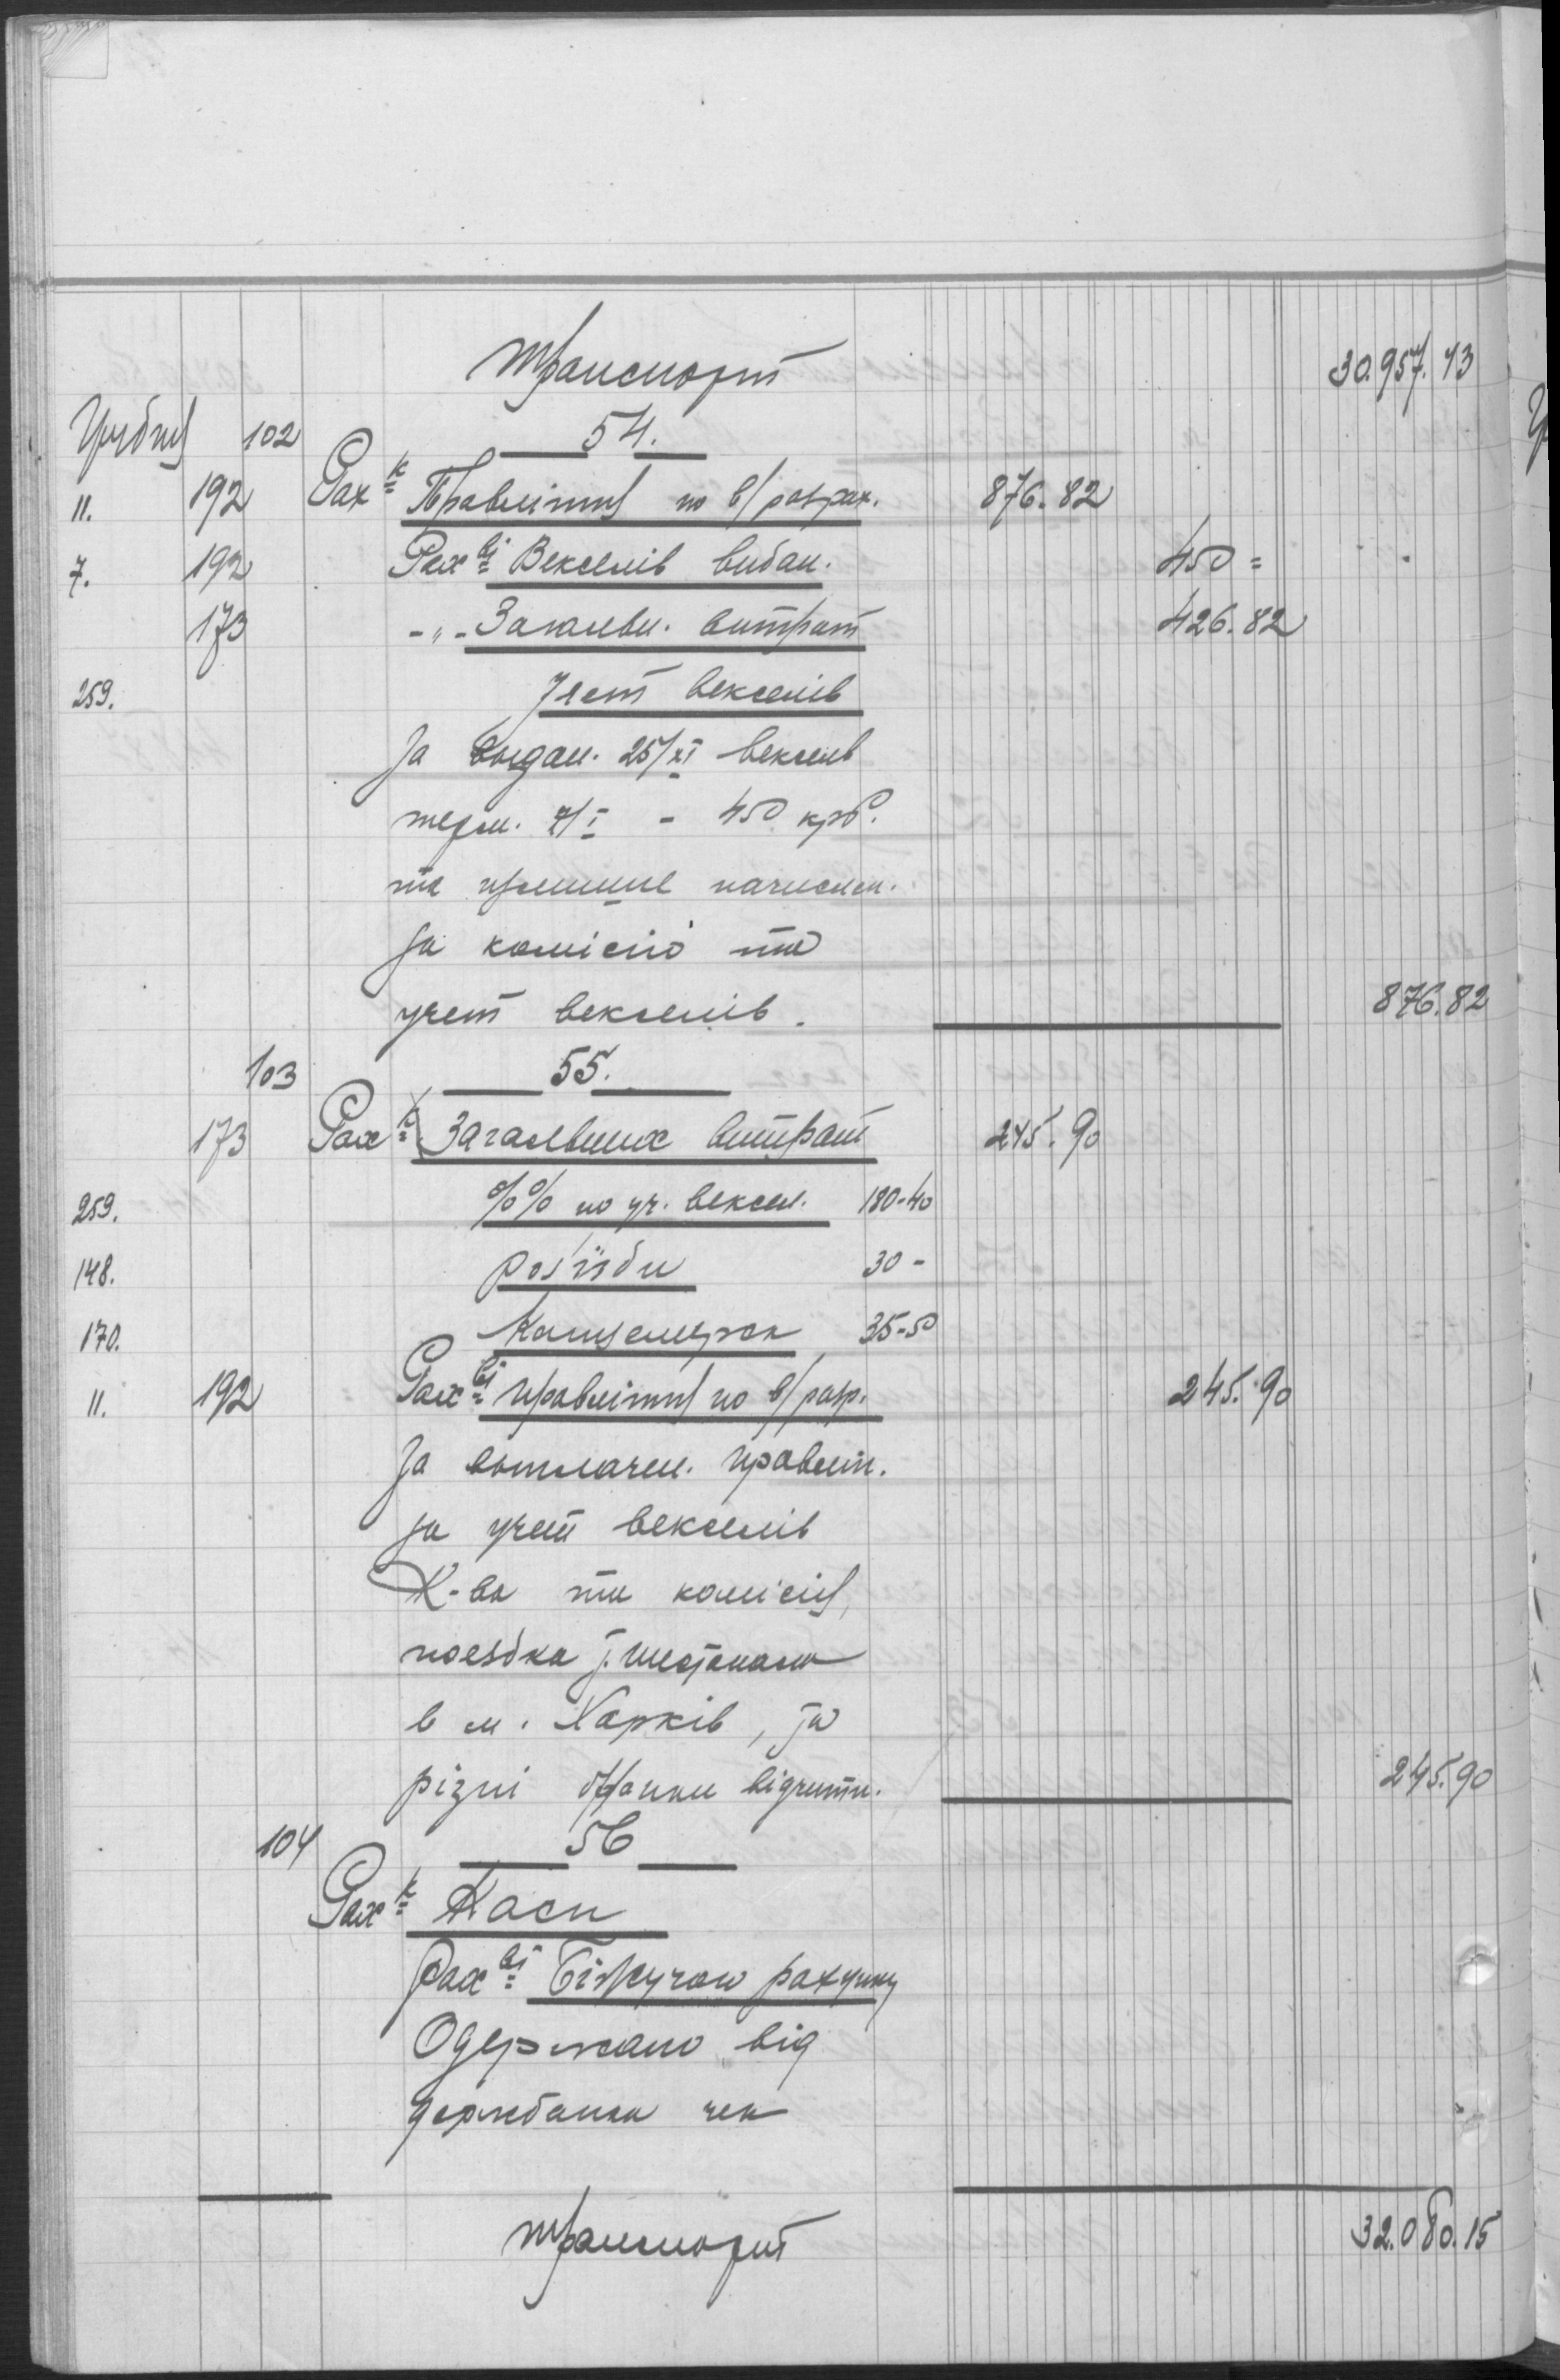 Транспорт 30.957.43
Грудня 102 54.
11. 192 Рах к Правління по в/розрах. 876.82
7. 192 Рах ві Векселів видан. 450 =
173 -„- Загальн. витрат 426.82
259. Учет векселів
За выдан. 25/XI векселів
терм. 7/I - 450 крб.
та начислен.
за комісію та
учет векселів. 876.82
103 55.
173 Рах к Загальних витрат 245.90
259. %% по уч. вексел. 180-40
148. розїзди 30 -
170. Канцелярск 35-50
11. 192 Рах ві Правління по в/розр. 245.90
За выплачен. Правлін.
за учет векселів
К-ва та комісія,
поездка
в м. Харків, за
різні бланки відчитн. 245.90
104 56
Рах к Каси
Рах ві Біжучого рахунку
Одержано від
держбанка чек
Транспорт 32.080.15